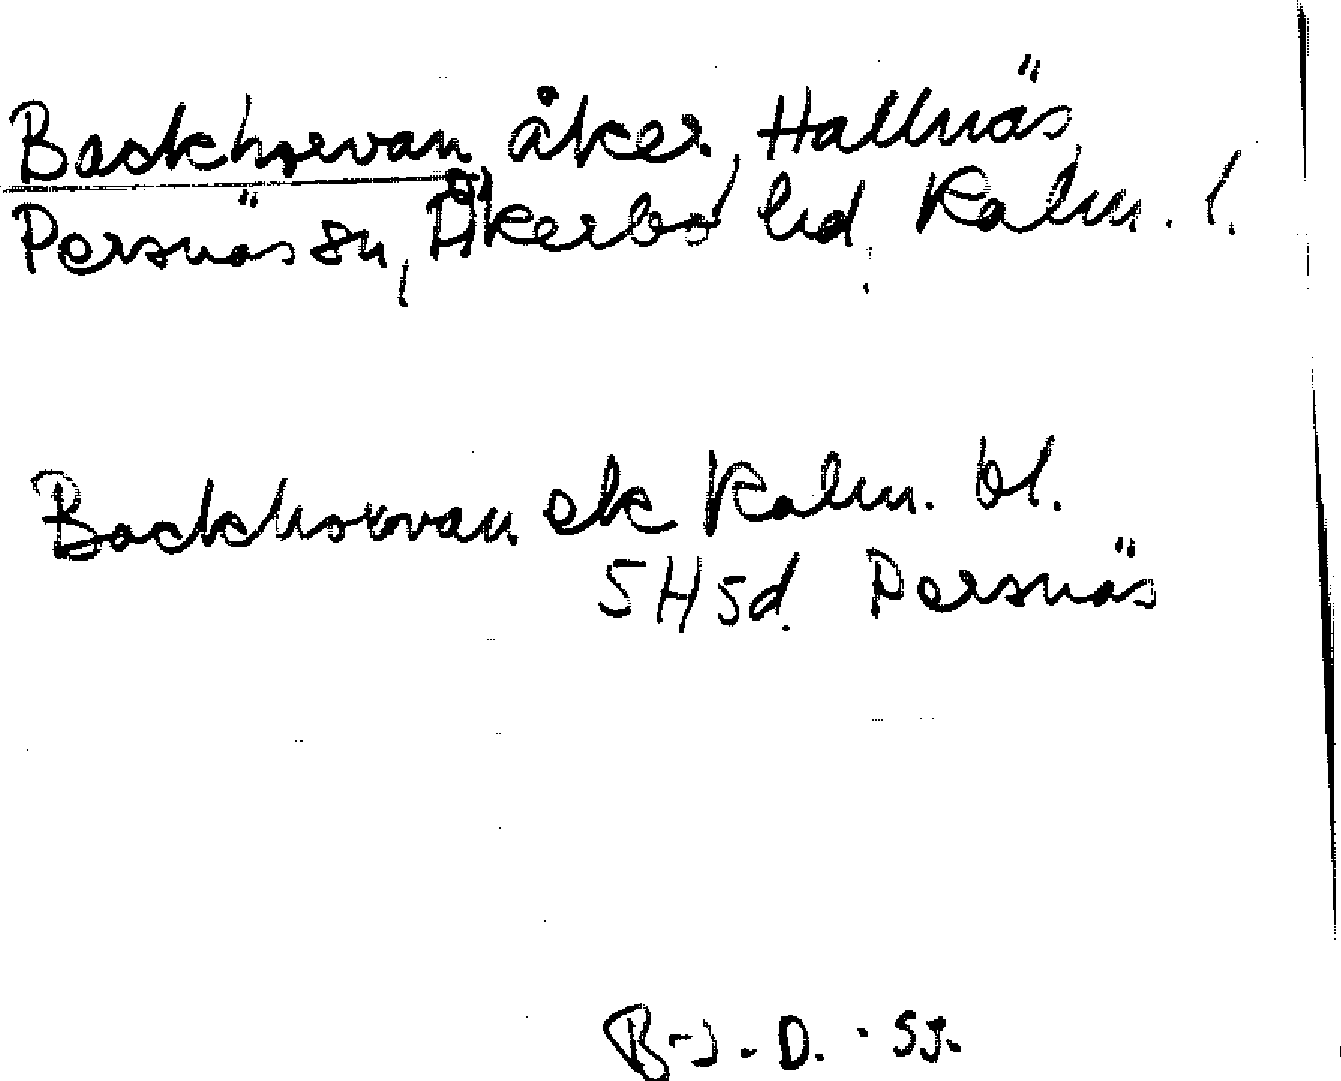 Backhorvan, åker, Hallnäs,
Persnäs sn, Åkerbo hd, Kalm. l.
Backhorvan ek Kalm. bl.
5H5d Persnäs
B-J. D. 55.